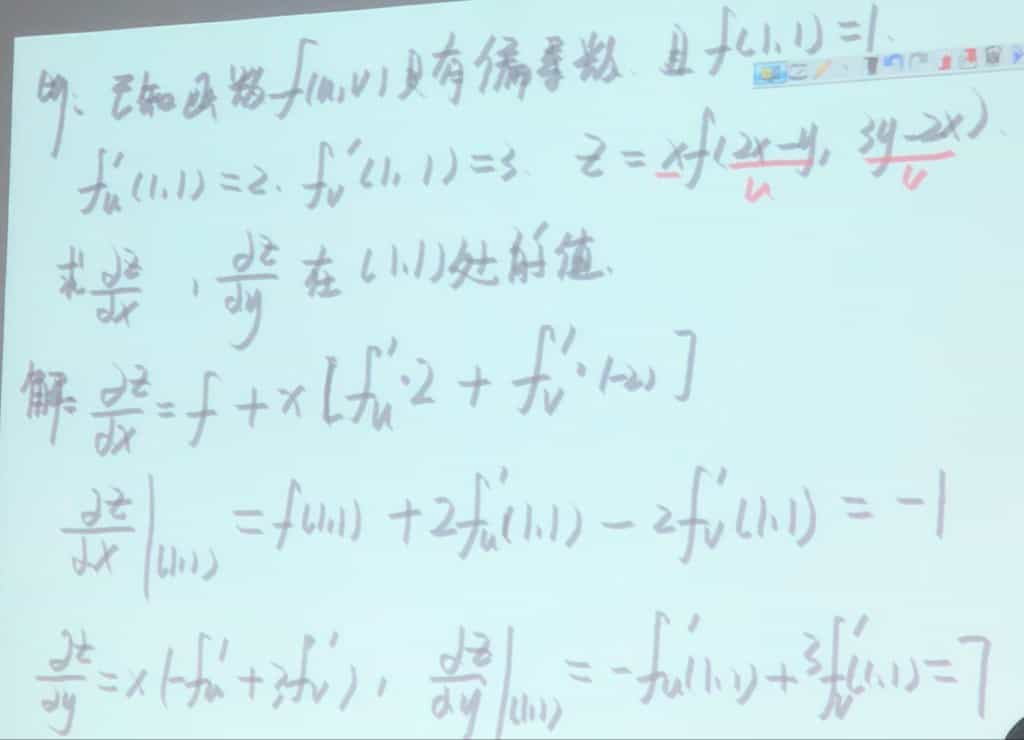 例: 已知函数 f(u,v) 具有偏导数. 且 f(1,1)=1.
f'ᵤ(1,1)=2. f'ᵥ(1,1)=3. z=xf(2x-y, 3y-2x).
u v
求 ∂z/∂x , ∂z/∂y 在 (1,1) 处的值.
解: ∂z/∂x = f + x[f'ᵤ·2 + f'ᵥ·(-2)]
∂z/∂x|(1,1) = f(1,1) + 2f'ᵤ(1,1) - 2f'ᵥ(1,1) = -1
∂z/∂y = x(-f'ᵤ + 3f'ᵥ), ∂z/∂y|(1,1) = -f'ᵤ(1,1) + 3f'ᵥ(1,1) = 7